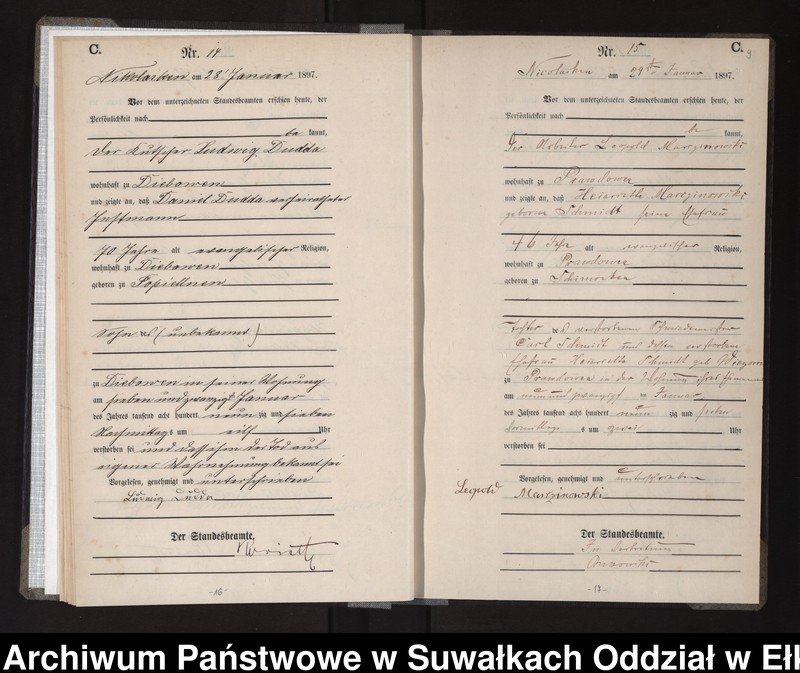 C.
Nr. 14
Nikolaiken am 28. Januar 1897.
Vor dem unterzeichneten Standesbeamten erschien heute, der
Persönlichkeit nach
be kannt,
der Kutscher Ludwig Dudda
wohnhaft zu Diebowen
und zeigte an, daß Daniel Dudda verheiratheter
Instmann
70 Jahre alt evangelischer Religion,
wohnhaft zu Diebowen
geboren zu
Sohn des (unbekannt)
zu Diebowen in seiner Wohnung
am sieben und zwanzigsten Januar
des Jahres tausend acht hundert neun zig und sieben
Nachmittags um elf Uhr
verstorben sei und daß ihm der Tod aus
eigener Wahrnehmung bekannt sei
Vorgelesen, genehmigt und unterschrieben
Ludwig Dudda
Der Standesbeamte.
-16-
Nr. 15
C.
9
am 29ten Januar 1897.
Vor dem unterzeichneten Standesbeamten erschien heute, der
Persönlichkeit nach
be kannt,
Der Leopold Marzinowski
wohnhaft zu Prawdowen
und zeigte an, daß Heinriette Marzinowski
geborne Schmidt seine Ehefrau
46 Jahr alt evangelischer Religion,
wohnhaft zu Prawdowen
geboren zu
Tochter des verstorbenen Schmiedemeister
Carl Schmidt und dessen verstorbene
Ehefrau Heinriette Schmidt geb
zu Prawdowen in der Wohnung ihres Ehemannes
am neun und zwanzigst en Januar
des Jahres tausend acht hundert neun zig und sieben
Vormittag s um zwei Uhr
verstorben sei
Vorgelesen, genehmigt und unterschrieben
Leopold Marzinowski
Der Standesbeamte.
In Vertretung
-17-
Archiwum Państwowe w Suwałkach Oddział w Ełk